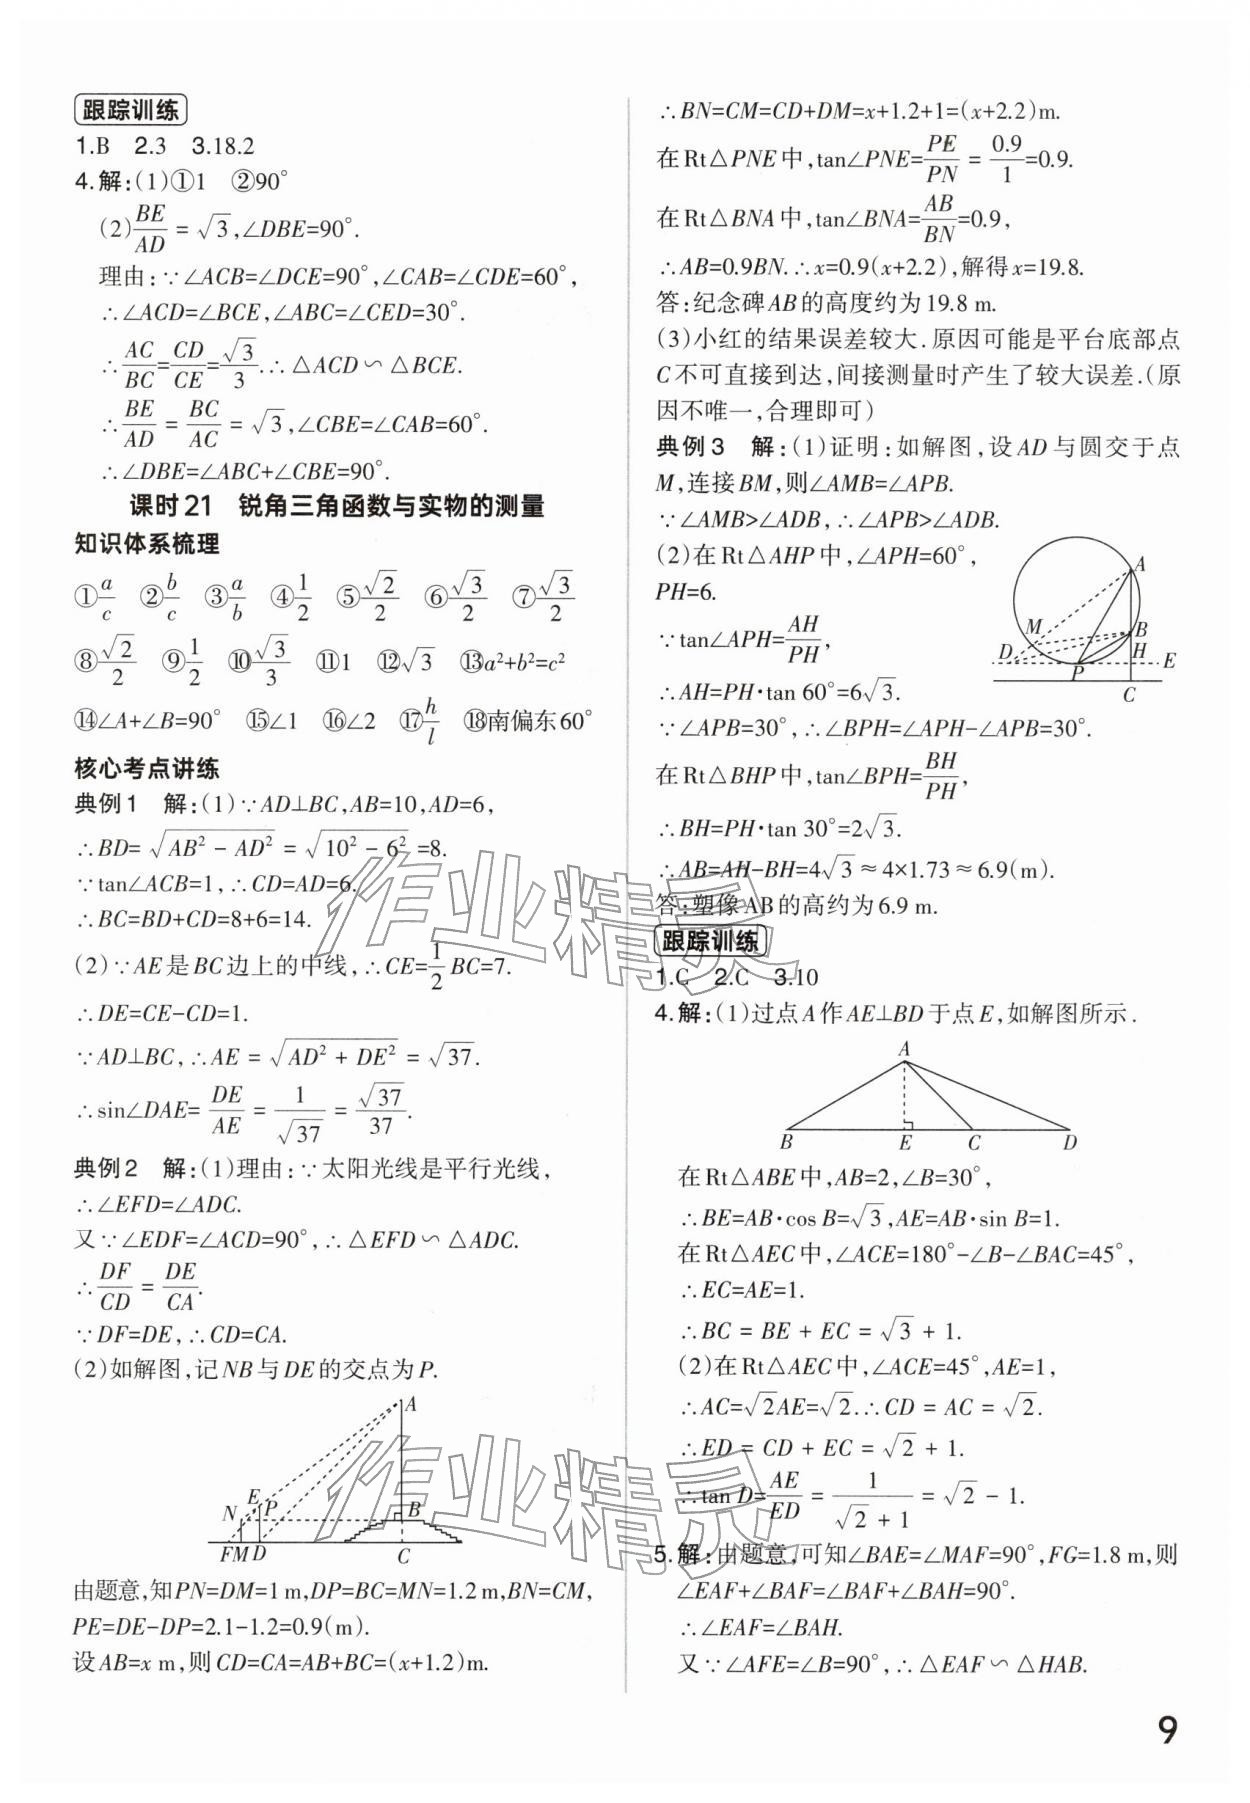 跟踪训练
1.B 2.3 3.18.2
4.解:(1)①1 ②90°
(2)BE/AD = √3,∠DBE=90°.
理由:∵∠ACB=∠DCE=90°,∠CAB=∠CDE=60°,
∴∠ACD=∠BCE,∠ABC=∠CED=30°.
∴AC/BC=CD/CE=√3/3.∴△ACD∽△BCE.
∴BE/AD = BC/AC = √3,∠CBE=∠CAB=60°.
∴∠DBE=∠ABC+∠CBE=90°.
课时21 锐角三角函数与实物的测量
知识体系梳理
①a/c ②b/c ③a/b ④1/2 ⑤√2/2 ⑥√3/2 ⑦√3/2
⑧√2/2 ⑨1/2 ⑩√3/3 ⑪1 ⑫√3 ⑬a²+b²=c²
⑭∠A+∠B=90° ⑮∠1 ⑯∠2 ⑰h/l ⑱南偏东60°
核心考点讲练
典例1 解:(1)∵AD⊥BC,AB=10,AD=6,
∴BD=√(AB² - AD²) = √(10² - 6²) =8.
∵tan∠ACB=1,∴CD=AD=6.
∴BC=BD+CD=8+6=14.
(2)∵AE是BC边上的中线,∴CE=1/2 BC=7.
∴DE=CE-CD=1.
∵AD⊥BC,∴AE = √(AD² + DE²) = √37.
∴sin∠DAE= DE/AE = 1/√37 = √37/37.
典例2 解:(1)理由:∵太阳光线是平行光线,
∴∠EFD=∠ADC.
又∵∠EDF=∠ACD=90°,∴△EFD∽△ADC.
∴DF/CD = DE/CA.
∵DF=DE,∴CD=CA.
(2)如解图,记NB与DE的交点为P.
A
E
N P B
FMD C
由题意,知PN=DM=1 m,DP=BC=MN=1.2 m,BN=CM,
PE=DE-DP=2.1-1.2=0.9(m).
设AB=x m,则CD=CA=AB+BC=(x+1.2)m.
∴BN=CM=CD+DM=x+1.2+1=(x+2.2)m.
在Rt△PNE中,tan∠PNE=PE/PN = 0.9/1=0.9.
在Rt△BNA中,tan∠BNA=AB/BN=0.9,
∴AB=0.9BN.∴x=0.9(x+2.2),解得x=19.8.
答:纪念碑AB的高度约为19.8 m.
(3)小红的结果误差较大.原因可能是平台底部点
C不可直接到达,间接测量时产生了较大误差.(原
因不唯一,合理即可)
典例3 解:(1)证明:如解图,设AD与圆交于点
M,连接BM,则∠AMB=∠APB.
∵∠AMB>∠ADB,∴∠APB>∠ADB.
(2)在Rt△AHP中,∠APH=60°,
PH=6.
∵tan∠APH=AH/PH,
∴AH=PH·tan 60°=6√3.
A
M B
D H E
P
C
∵∠APB=30°,∴∠BPH=∠APH-∠APB=30°.
在Rt△BHP中,tan∠BPH=BH/PH,
∴BH=PH·tan 30°=2√3.
∴AB=AH-BH=4√3≈4×1.73≈6.9(m).
答:塑像AB的高约为6.9 m.
跟踪训练
1.C 2.C 3.10
4.解:(1)过点A作AE⊥BD于点E,如解图所示.
A
B E C D
在Rt△ABE中,AB=2,∠B=30°,
∴BE=AB·cos B=√3,AE=AB·sin B=1.
在Rt△AEC中,∠ACE=180°-∠B-∠BAC=45°,
∴EC=AE=1.
∴BC = BE + EC = √3 + 1.
(2)在Rt△AEC中,∠ACE=45°,AE=1,
∴AC=√2AE=√2.∴CD = AC = √2.
∴ED = CD + EC = √2 + 1.
∴tan D=AE/ED = 1/(√2 + 1) = √2 - 1.
5.解:由题意,可知∠BAE=∠MAF=90°,FG=1.8 m,则
∠EAF+∠BAF=∠BAF+∠BAH=90°.
∴∠EAF=∠BAH.
又∵∠AFE=∠B=90°,∴△EAF∽△HAB.
9
作业精灵
作业精灵